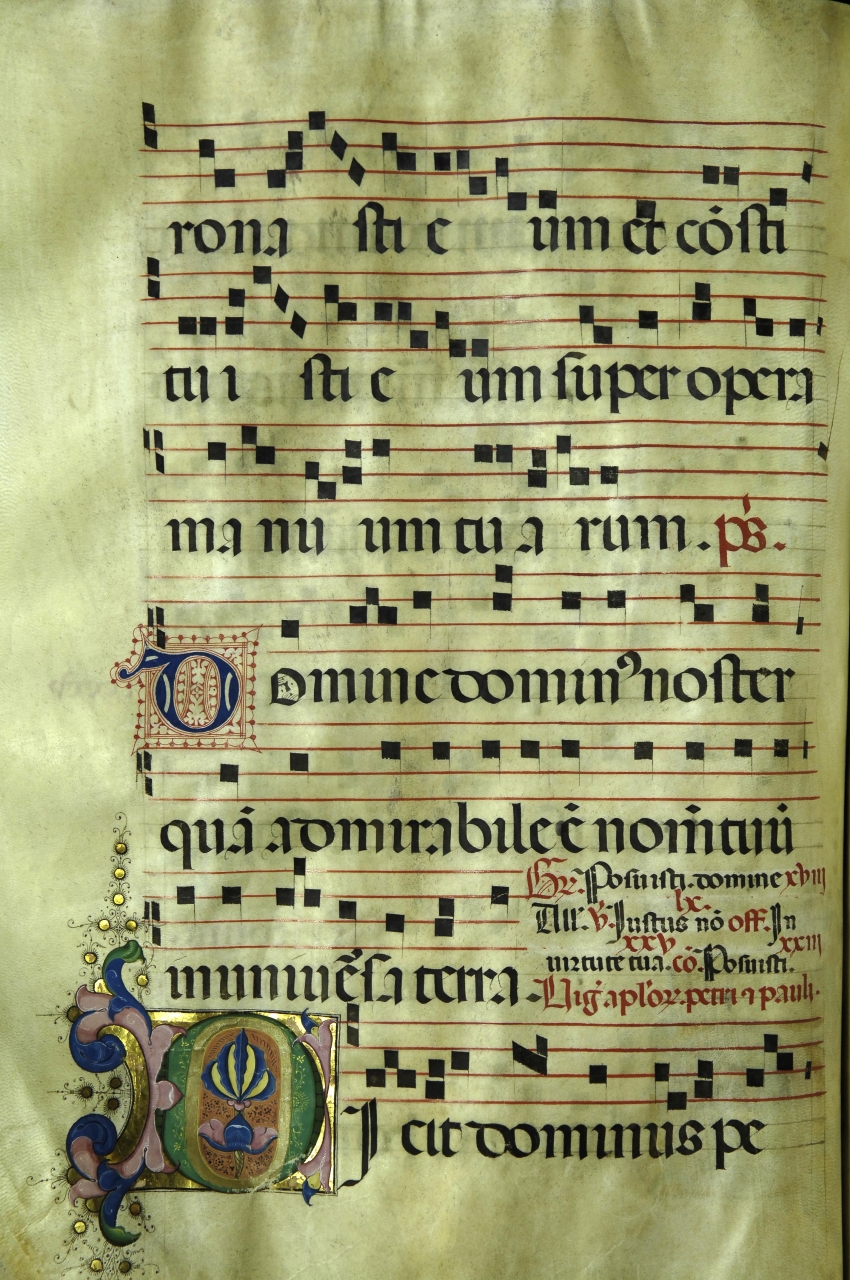 rona sti e um et cō sti
tu i sti e um super opera
ma nu um tu a rum. p̄s.
Domine dominꝰ noster
quā admirabile ē nom̄ tuū
in univ̄sa terra.
Gr. Posuisti. domine xviii
All. v̄. Iustus nō off. In
lx.
virtute tua. cō. Posuisti.
xxv xxiii
Viḡ aplōr. petri ⁊ pauli.
Dicit dominus pe